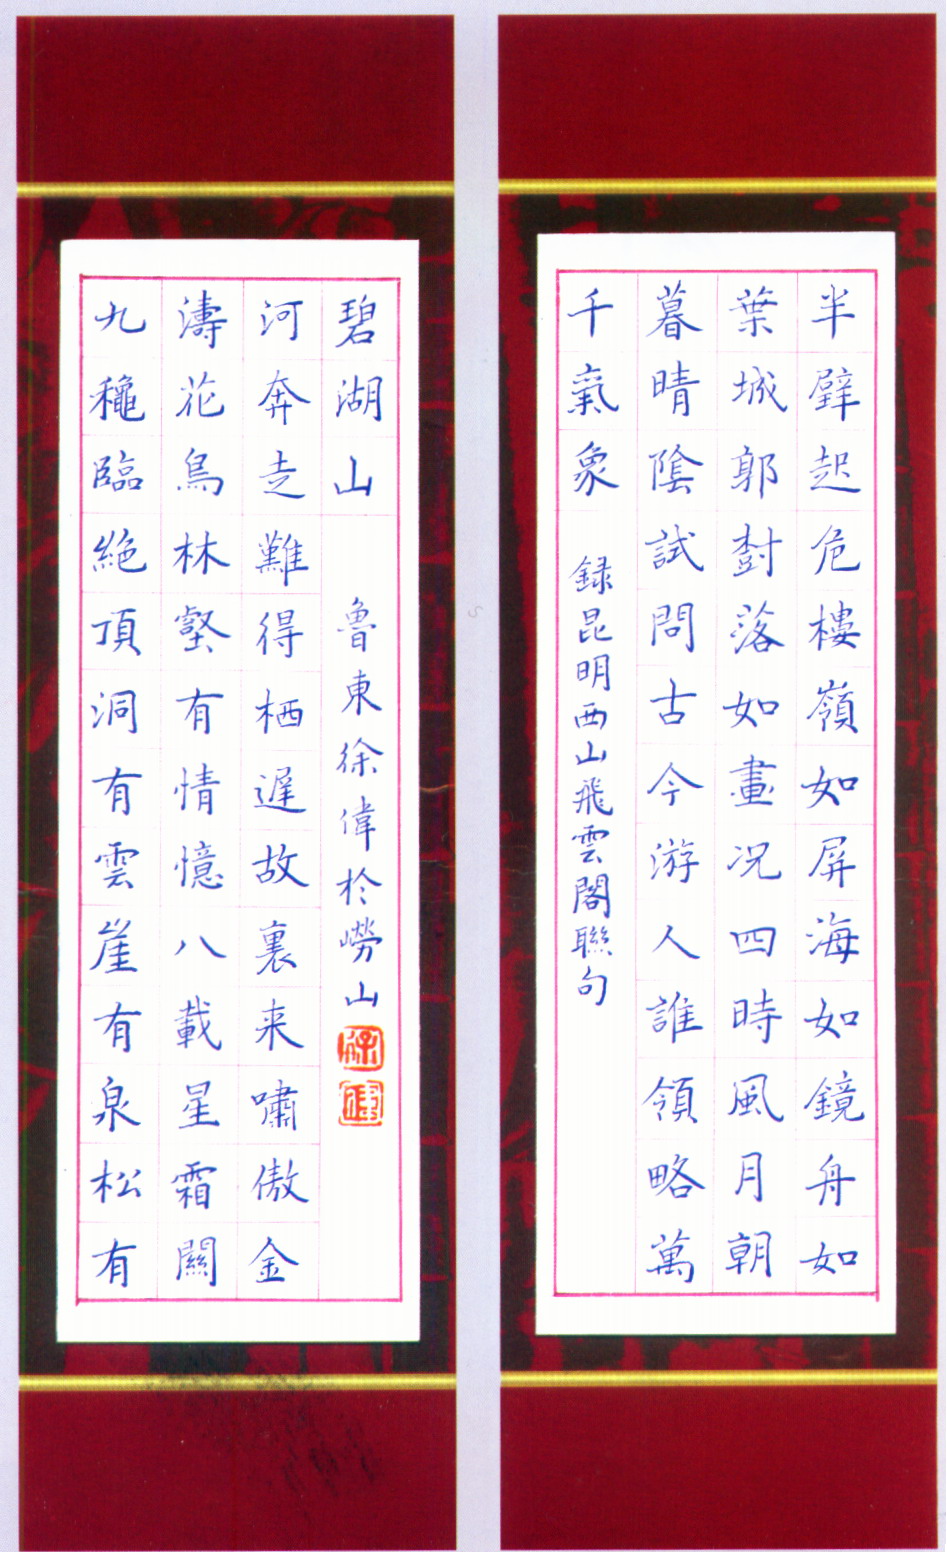 半壁起危樓嶺如屏海如鏡舟如
葉城郭尌落如畫况四時風月朝
暮晴陰試問古今游人誰領略萬
千氣象
録昆明西山飛雲閣聯句
九龝臨絶頂洞有雲崖有泉松有
濤花鳥林壑有情憶八載星霜關
河奔走難得栖遲故裏来嘯傲金
碧湖山
魯東徐偉於嶗山
徐
偉